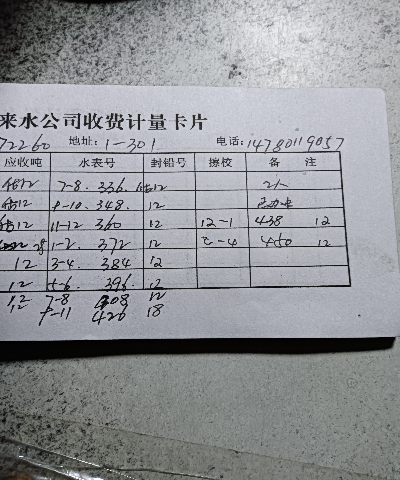 来水公司收费计量卡片
72260 地址: 1-301 电话: 14780119057
应收吨 水表号 封铅号 擦校 备 注
12 7-8. 336. 12
12 9-10. 348. 12
12 11-12 360 12 12-1 438 12
1-2. 372 12 2-4 450 12
12 3-4. 384 12
12 5-6. 396. 12
12 7-8 408 12
12 9-11 420 18